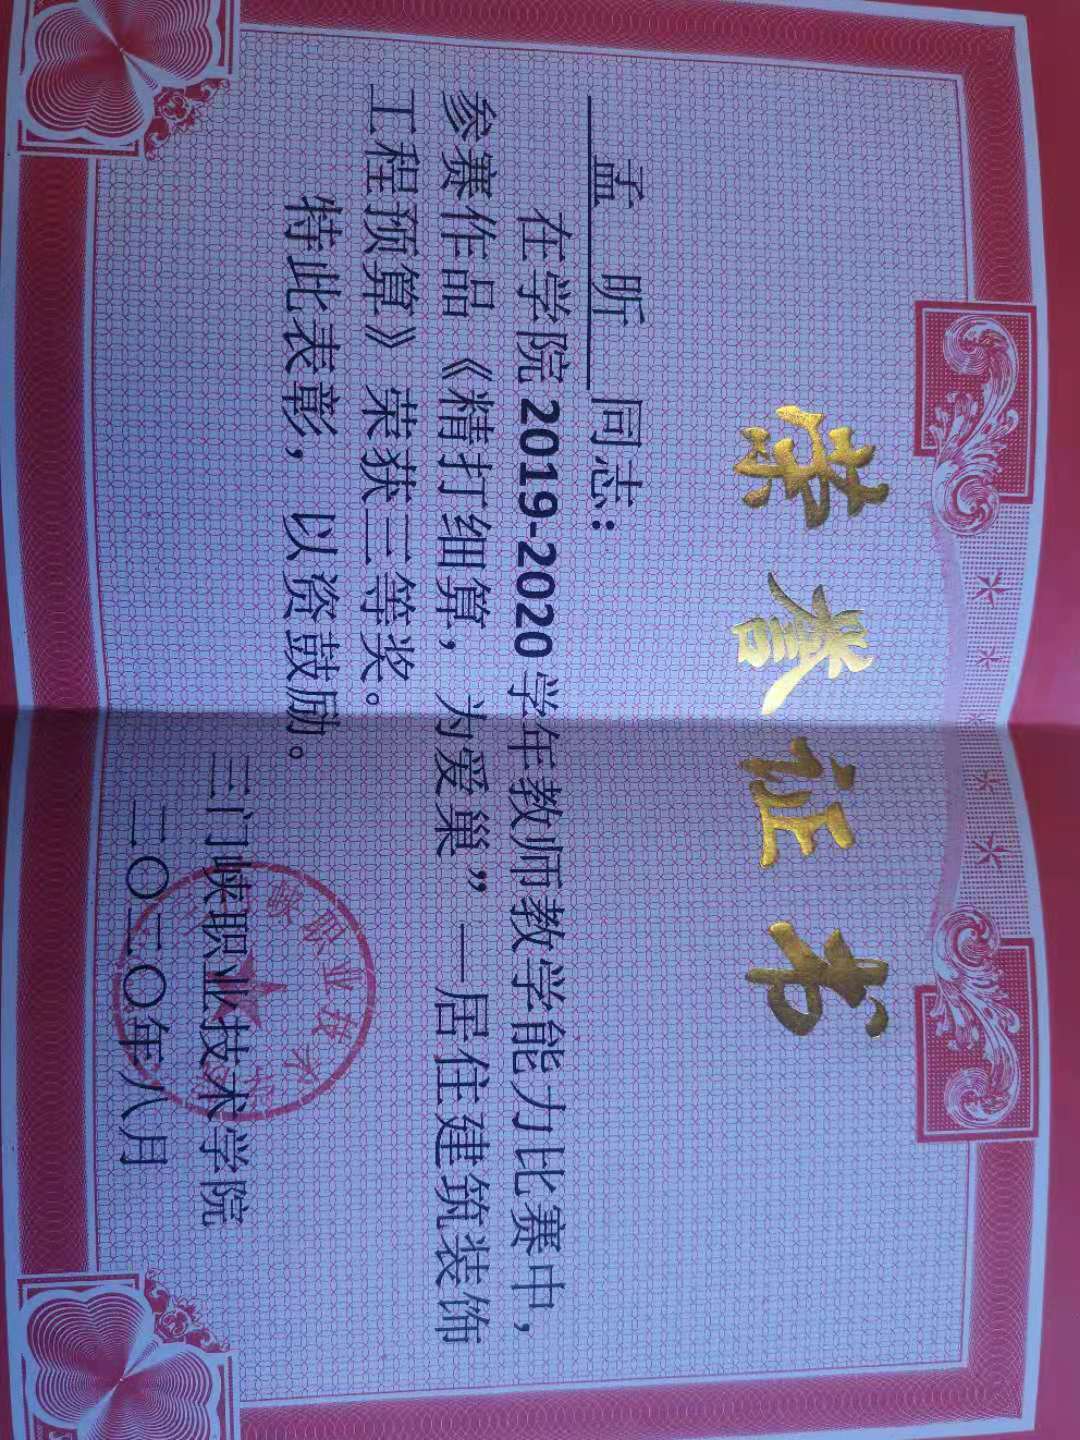 荣誉证书
孟 昕 同志:
在学院 2019-2020 学年教师教学能力比赛中,
参赛作品《精打细算,为爱巢”—居住建筑装饰
工程预算》荣获三等奖。
特此表彰,以资鼓励。
三门峡职业技术学院
二〇二〇年八月